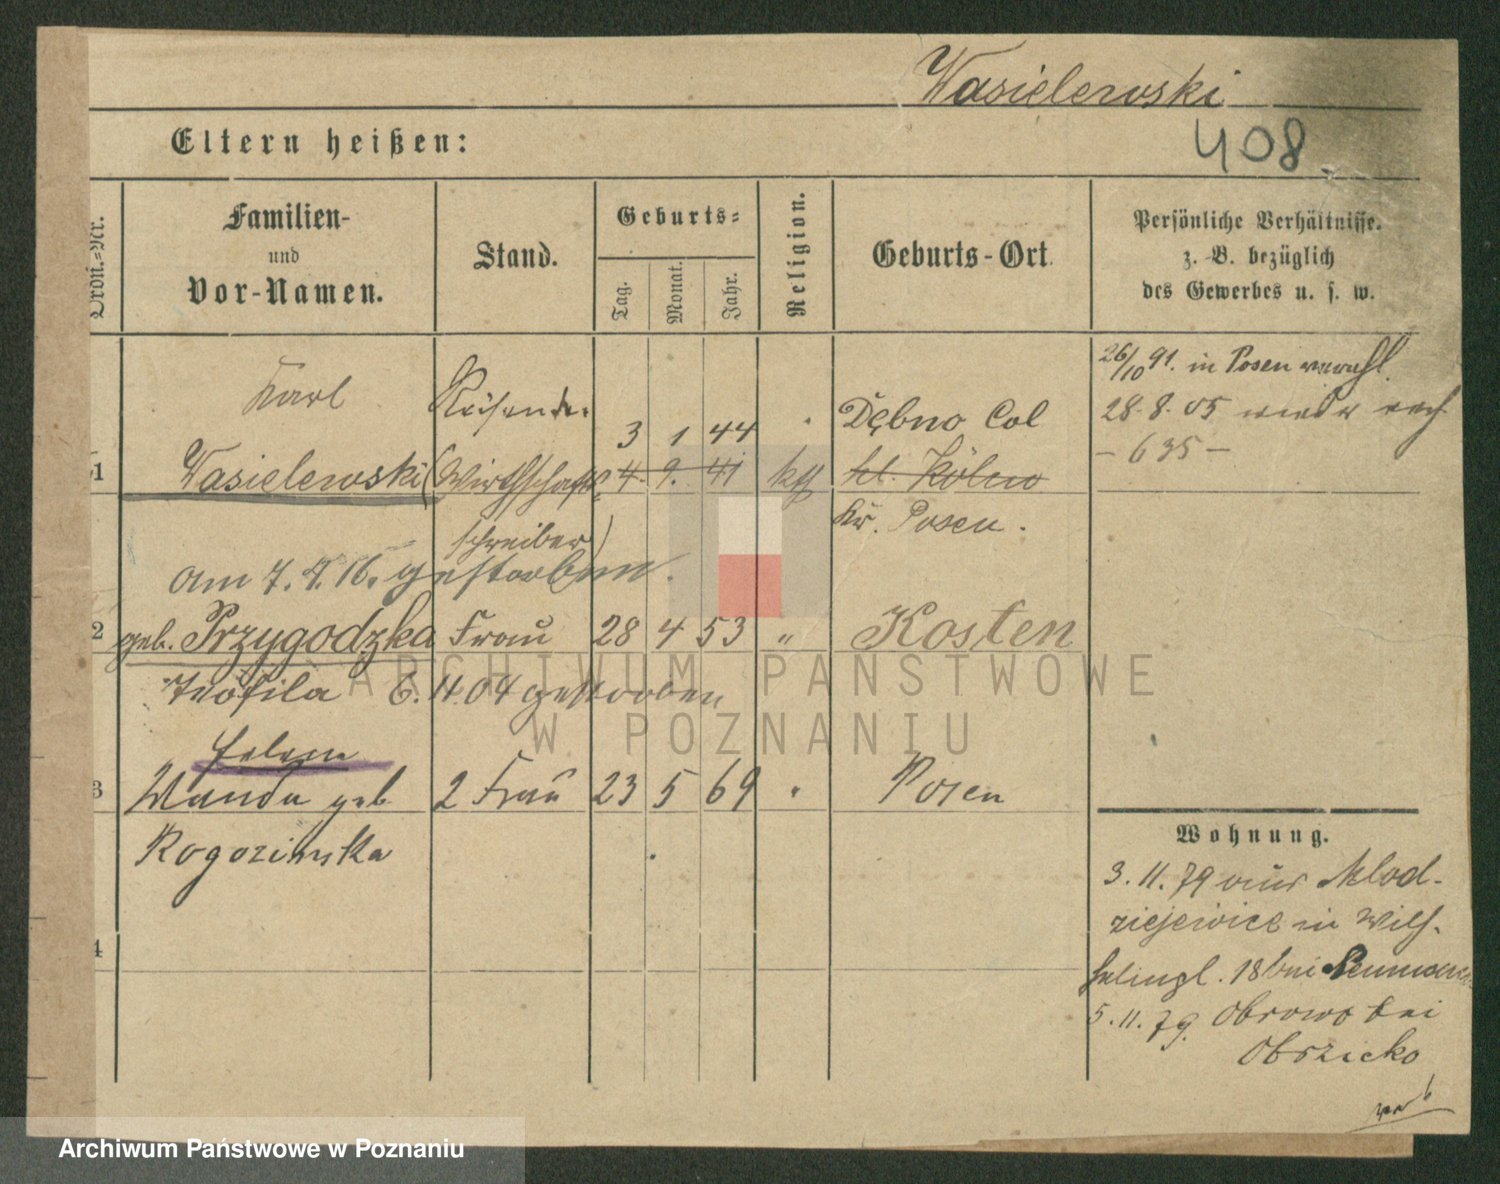 Wasielewski
408
Eltern heißen:
Ordn.-Nr.
Familien-
und
Vor-Namen.
Stand.
Geburts-
Tag.
Monat.
Jahr.
Religion.
Geburts-Ort.
Persönliche Verhältnisse.
z. B. bezüglich
des Gewerbes u. s. w.
26/10 91. in Posen
28.8.05 wieder nach
- 635 -
Karl
Reisender
3 1 44
Dębno Col
1
Wasielewski
(Wirthschafts
4. 9. 41
kth
kl. Kölno
Kr. Posen.
schreiber)
am 7. 7. 16. gestorben.
2
geb. Przygodzka
Frau
28 4 53
"
Kosten
Teofila
6.11.04 gestorben
Helene
3
Wanda geb
2 Frau
23 5 69
"
Posen
Rogozinska
4
Wohnung.
3.11.79 aus Mlod-
ziejewice in Wilh-
helmpl. 18 bei
5.11.79. Obrowo bei
Obrzicko
ARCHIWUM PAŃSTWOWE
W POZNANIU
Archiwum Państwowe w Poznaniu